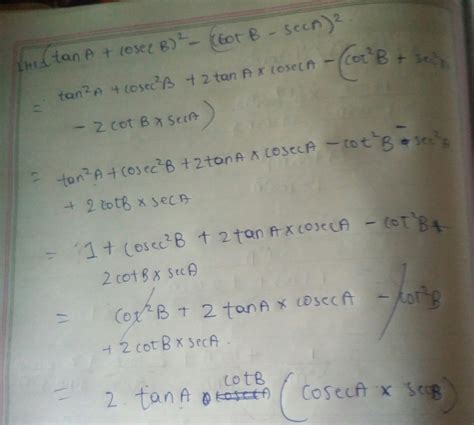 LHS (tanA + cosec B)² - (cot B - secA)²
= tan²A + cosec²B + 2tanA × cosecA - (cot²B + sec²
- 2cotB × secA)
= tan²A + cosec²B + 2tanA × cosecA - cot²B - sec²A
+ 2cotB × secA
= 1 + cosec²B + 2tanA × cosecA - cot²B +
2cotB × secA
= cot²B + 2tanA × cosecA - cot²B
+ 2cotB × secA.
= 2. tanA cotB (cosecA × secB)